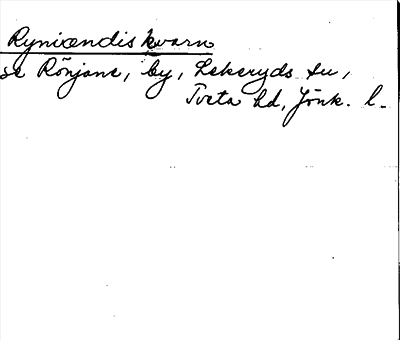 Ryniændis kvarn
se Rönjane, by, Lekeryds sn,
Tveta hd, Jönk. l.